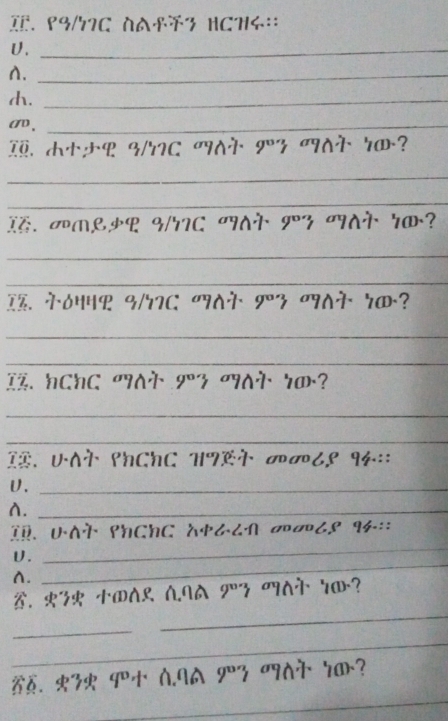 ፲፫. የዓ/ነገር ስልቶችን ዘርዝሩ፡፡
ሀ.
ለ.
ሐ.
መ.
፲፬. ሐተታዊ ዓ/ነገር ማለት ምን ማለት ነው?
፲፭. መጠይቃዊ ዓ/ነገር ማለት ምን ማለት ነው?
፲፮. ትዕዛዛዊ ዓ/ነገር ማለት ምን ማለት ነው?
፲፯. ክርክር ማለት ምን ማለት ነው?
፲፰. ሁለት የክርክር ዝግጅት መመሪያ ፃፉ፡፡
ሀ.
ለ.
፲፱. ሁለት የክርክር አቀራረብ መመሪያ ፃፉ፡፡
ሀ.
ለ.
፳. ቋንቋ ተወለደ ሲባል ምን ማለት ነው?
፳፩. ቋንቋ ሞተ ሲባል ምን ማለት ነው?